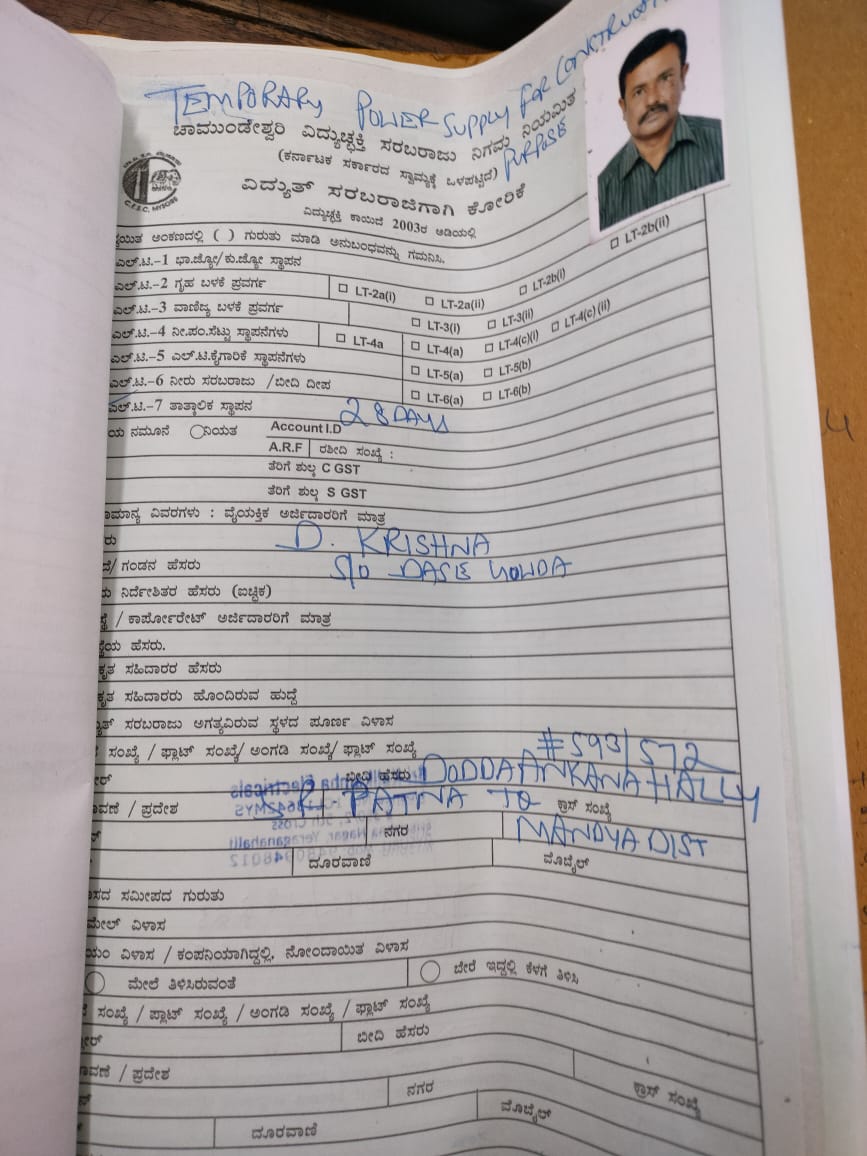 TEMPORARY POWER SUPPLY FOR CONSTRUCT
PURPOSE
ಚಾಮುಂಡೇಶ್ವರಿ ವಿದ್ಯುಚ್ಛಕ್ತಿ ಸರಬರಾಜು ನಿಗಮ ನಿಯಮಿತ
(ಕರ್ನಾಟಕ ಸರ್ಕಾರದ ಸ್ವಾಮ್ಯಕ್ಕೆ ಒಳಪಟ್ಟಿದೆ)
C.E.S.C, MYSORE
ವಿದ್ಯುತ್ ಸರಬರಾಜಿಗಾಗಿ ಕೋರಿಕೆ
ವಿದ್ಯುಚ್ಛಕ್ತಿ ಕಾಯಿದೆ 2003ರ ಅಡಿಯಲ್ಲಿ
ಅಂಕಣದಲ್ಲಿ ( ) ಗುರುತು ಮಾಡಿ ಅನುಬಂಧವನ್ನು ಗಮನಿಸಿ.
ಎಲ್.ಟಿ.-1 ಭಾ.ಜ್ಯೋ/ಕು.ಜ್ಯೋ ಸ್ಥಾಪನ
ಎಲ್.ಟಿ.-2 ಗೃಹ ಬಳಕೆ ಪ್ರವರ್ಗ □ LT-2a(i) □ LT-2a(ii) □ LT-2b(i) □ LT-2b(ii)
ಎಲ್.ಟಿ.-3 ವಾಣಿಜ್ಯ ಬಳಕೆ ಪ್ರವರ್ಗ □ LT-3(i) □ LT-3(ii)
ಎಲ್.ಟಿ.-4 ನೀ.ಪಂ.ಸೆಟ್ಟು ಸ್ಥಾಪನೆಗಳು □ LT-4a □ LT-4(a) □ LT-4(c)(i) □ LT-4(c)(ii)
ಎಲ್.ಟಿ.-5 ಎಲ್.ಟಿ.ಕೈಗಾರಿಕೆ ಸ್ಥಾಪನೆಗಳು □ LT-5(a) □ LT-5(b)
ಎಲ್.ಟಿ.-6 ನೀರು ಸರಬರಾಜು /ಬೀದಿ ದೀಪ □ LT-6(a) □ LT-6(b)
ಎಲ್.ಟಿ.-7 ತಾತ್ಕಾಲಿಕ ಸ್ಥಾಪನ 28 DAYS
ಯ ನಮೂನೆ ನಿಯತ Account I.D
A.R.F ರಶೀದಿ ಸಂಖ್ಯೆ :
ತೆರಿಗೆ ಶುಲ್ಕ C GST
ತೆರಿಗೆ ಶುಲ್ಕ S GST
ಾಮಾನ್ಯ ವಿವರಗಳು : ವೈಯಕ್ತಿಕ ಅರ್ಜಿದಾರರಿಗೆ ಮಾತ್ರ
ರು D. KRISHNA
/ ಗಂಡನ ಹೆಸರು S/O DASE GOWDA
ನಿರ್ದೇಶಿತರ ಹೆಸರು (ಐಚ್ಛಿಕ)
/ ಕಾರ್ಪೋರೇಟ್ ಅರ್ಜಿದಾರರಿಗೆ ಮಾತ್ರ
ಯ ಹೆಸರು.
ಕೃತ ಸಹಿದಾರರ ಹೆಸರು
ಕೃತ ಸಹಿದಾರರು ಹೊಂದಿರುವ ಹುದ್ದೆ
ತ್ ಸರಬರಾಜು ಅಗತ್ಯವಿರುವ ಸ್ಥಳದ ಪೂರ್ಣ ವಿಳಾಸ
ಸಂಖ್ಯೆ / ಫ್ಲಾಟ್ ಸಂಖ್ಯೆ/ ಅಂಗಡಿ ಸಂಖ್ಯೆ/ ಫ್ಲಾಟ್ ಸಂಖ್ಯೆ #593/572
ರ್ ಬೀದಿ ಹೆಸರು DODDA ANKANAHALLY
ಾವಣೆ / ಪ್ರದೇಶ S R PATNA TQ ಕ್ರಾಸ್ ಸಂಖ್ಯೆ
ನಗರ MANDYA DIST
ದೂರವಾಣಿ ಮೊಬೈಲ್
ಸದ ಸಮೀಪದ ಗುರುತು
ಮೇಲ್ ವಿಳಾಸ
ಯಂ ವಿಳಾಸ / ಕಂಪನಿಯಾಗಿದ್ದಲ್ಲಿ, ನೋಂದಾಯಿತ ವಿಳಾಸ
ಮೇಲೆ ತಿಳಿಸಿರುವಂತೆ ಬೇರೆ ಇದ್ದಲ್ಲಿ ಕೆಳಗೆ ತಿಳಿಸಿ
ಸಂಖ್ಯೆ / ಪ್ಲಾಟ್ ಸಂಖ್ಯೆ / ಅಂಗಡಿ ಸಂಖ್ಯೆ / ಫ್ಲಾಟ್ ಸಂಖ್ಯೆ
ರ್ ಬೀದಿ ಹೆಸರು
ಾವಣೆ / ಪ್ರದೇಶ ಕ್ರಾಸ್ ಸಂಖ್ಯೆ
ನಗರ
ದೂರವಾಣಿ ಮೊಬೈಲ್